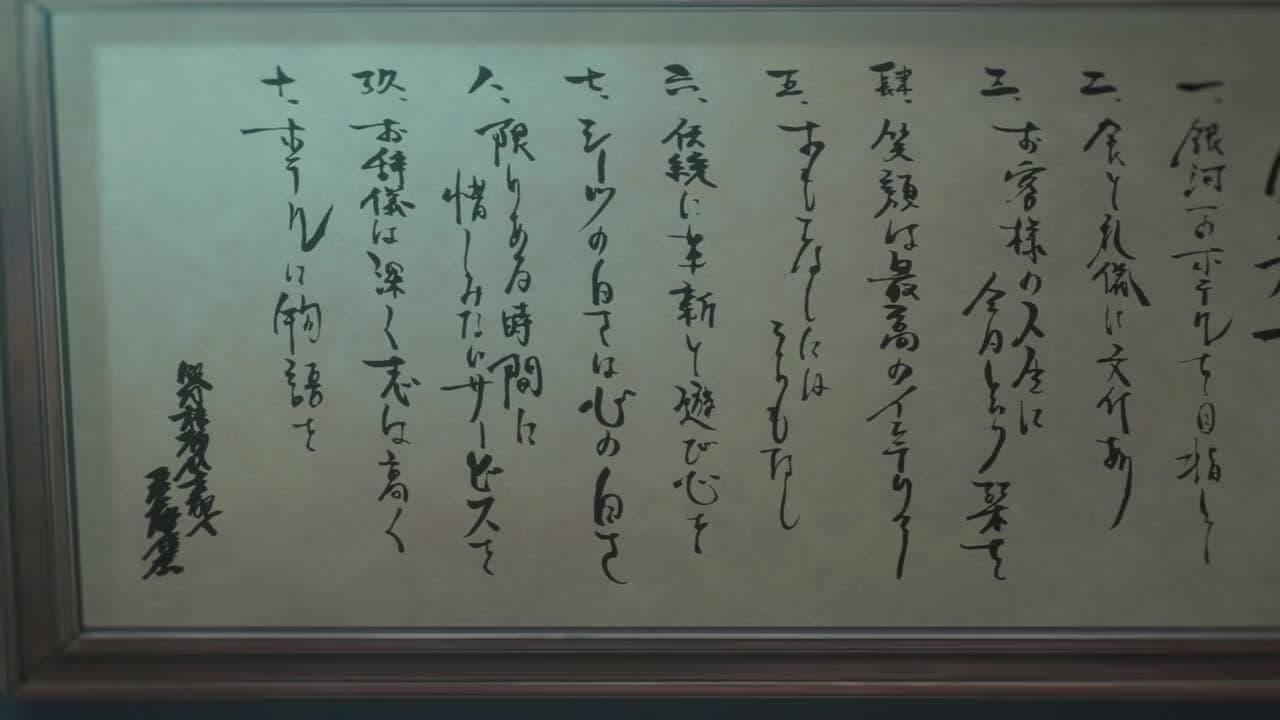 一、銀河一のホテルを目指して
二、食と礼儀に文化あり
三、お客様の人生に
今日という栞を
肆、笑顔は最高のインテリア
五、おもてなしには
うらもなし
六、伝統に革新と遊び心を
七、シーツの白さは心の白さ
八、限りある時間に
惜しみないサービスを
玖、お辞儀は深く志は高く
十、ホテルに物語を